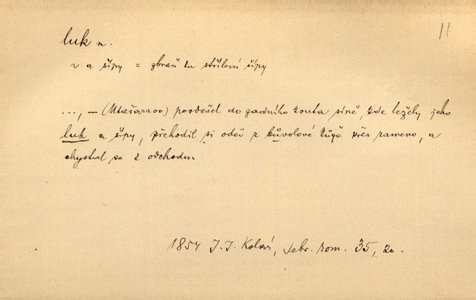 11
luk m.
l. a šípy = zbraň ku střílení šípy
..., – (Utaśaraoo) poodešel do zadního kouta síně, kde ležely jeho
luk a šípy, přehodil si oděv z bůvolové kůže přes rameno, a
chystal se k odchodu.
1854 J. J. Kolár, sebr. rom. 35, 20.